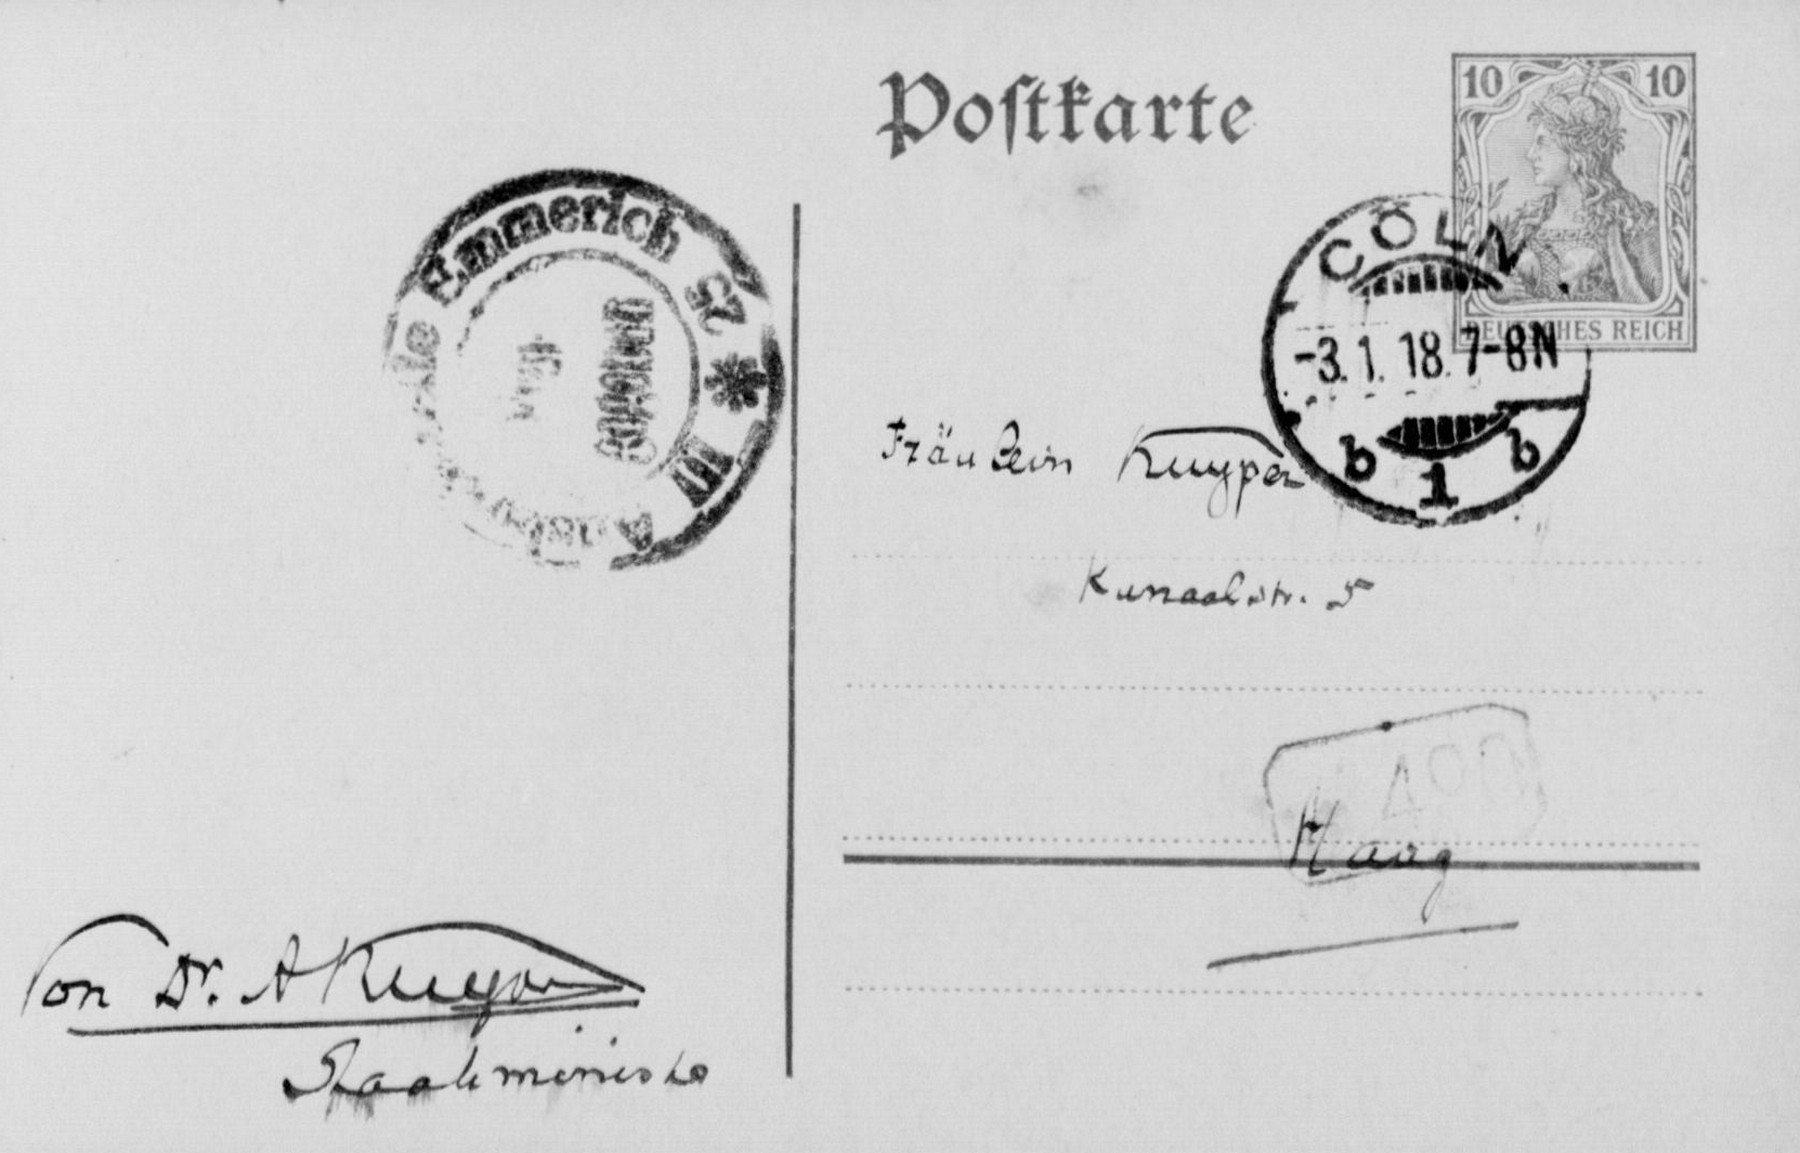 Postkarte
10 10
DEUTSCHES REICH
CÖLN
-3.1.18.7-8N
b 1 b
Emmerich
Fräulein Kuyper
Kanaalstr. 5
Haag
Von Dr. A Kuyper
Staatsminister